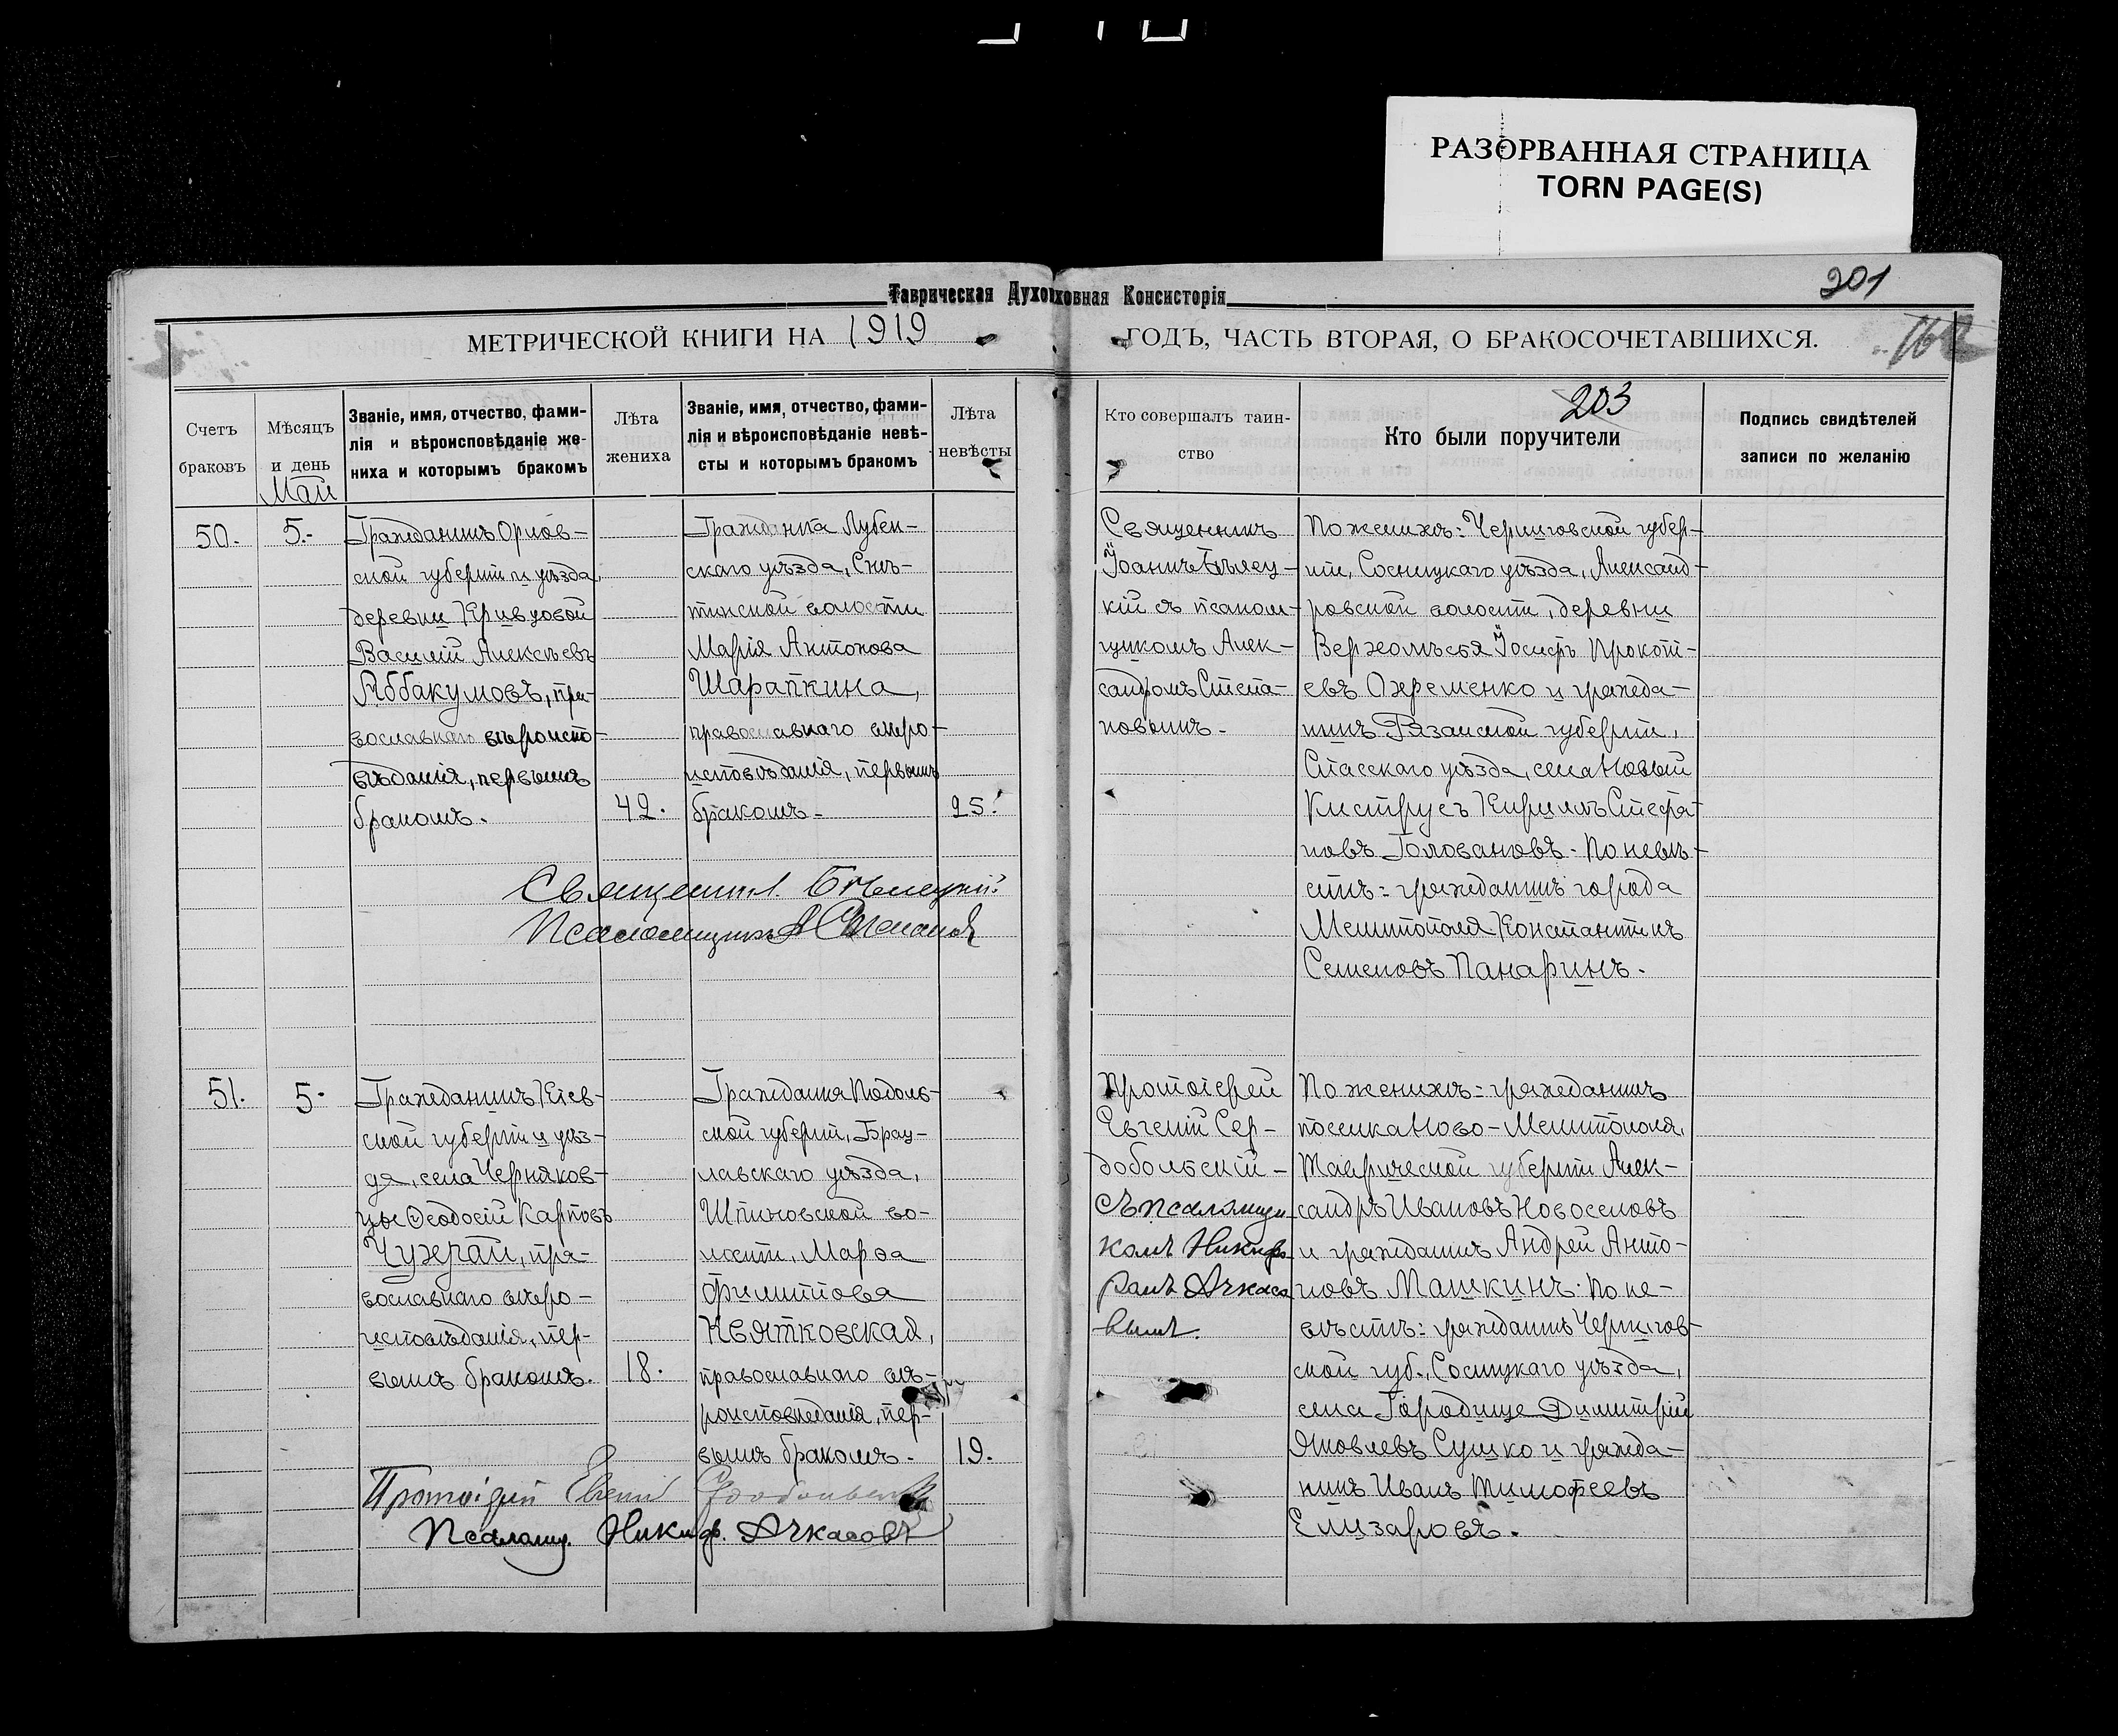 РАЗОРВАННАЯ СТРАНИЦА
TORN PAGE(S)
Таврическая Духовная Консисторія
201
МЕТРИЧЕСКОЙ КНИГИ НА 1919
ГОДЪ, ЧАСТЬ ВТОРАЯ, О БРАКОСОЧЕТАВШИХСЯ.
203
Счетъ
браковъ
Мѣсяцъ
и день
Май
Званіе, имя, отчество, фами-
лія и вѣроисповѣданіе же-
ниха и которымъ бракомъ
Лѣта
жениха
Званіе, имя, отчество, фами-
лія и вѣроисповѣданіе невѣ-
сты и которымъ бракомъ
Лѣта
невѣсты
Кто совершалъ таин-
ство
Кто были поручители
Подпись свидѣтелей
записи по желанію
50.
5.-
Гражданинъ Орлов-
ской губерніи и уѣзда,
деревни Кривцовой
Василій Алексѣевъ
Аббакумовъ, пра-
вославнаго вѣроиспо-
вѣданія, первымъ
бракомъ.
42.
Гражданка Лубен-
скаго уѣзда, Снѣ-
тинской волости
Марія Антонова
Шарапкина,
православнаго вѣро-
исповѣданія, первымъ
бракомъ.
25.
Священникъ
Іоаннъ Бѣлец-
кій съ псалом-
щикомъ Алек-
сандромъ Степа-
новымъ.
По женихѣ: Черниговской губер-
ніи, Сосницкаго уѣзда, Александ-
ровской волости, деревни
Вержолѣсья Іосифъ Прокопі-
евъ Охременко и гражда-
нинъ Рязанской губерніи,
Спасскаго уѣзда, села Новый
Киструсъ Кириллъ Стефа-
новъ Головановъ. По невѣ-
стѣ: гражданинъ города
Мелитополя Константинъ
Семеновъ Панаринъ.
Священникъ І. Бѣлецкій
Псаломщикъ А Степановъ
51.
5.
Гражданинъ Кіев-
ской губерніи и уѣз-
да, села Черняков-
цы Ѳеодосій Карповъ
Чухрай, пра-
вославнаго вѣро-
исповѣданія, пер-
вымъ бракомъ.
18.
Гражданка Подоль-
ской губерніи, Брац-
лавскаго уѣзда,
Шпиковской во-
лости, Марѳа
Филиппова
Квятковская,
православнаго вѣ-
роисповѣданія, пер-
вымъ бракомъ.
19.
Протоіерей
Евгеній Сер-
добольскій
съ псаломщи-
комъ Никифо-
ромъ Ачкасо-
вымъ.
По женихѣ: гражданинъ
поселка Ново-Мелитополя,
Таврической губерніи Алек-
сандръ Ивановъ Новоселовъ
и гражданинъ Андрей Анто-
новъ Машкинъ. По не-
вѣстѣ: гражданинъ Чернигов-
ской губ., Сосницкаго уѣзда,
села Городище Димитрій
Яковлевъ Сушко и гражда-
нинъ Иванъ Тимофеевъ
Елизаровъ.
Протоіерей Евгеній Сердобольскій
Псаломщ. Никиф. Ачкасовъ